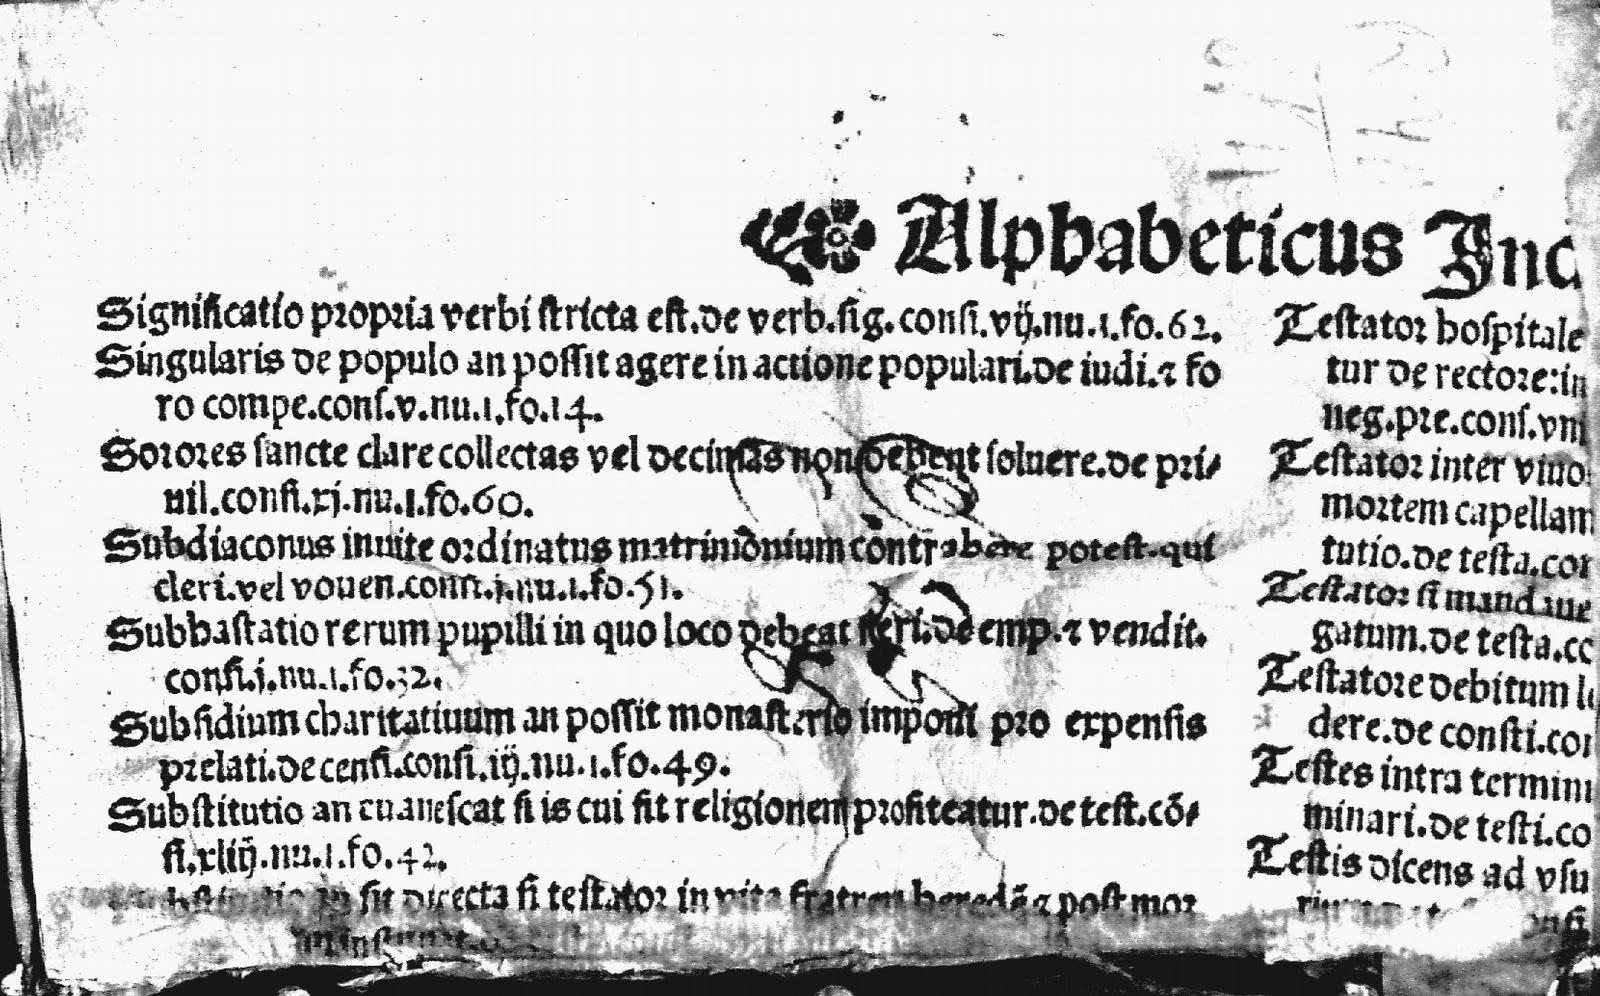 Alphabeticus Ind
Significatio propria verbi stricta est.de verb.sig.consi.vij.nu.1.fo.62.
Singularis de populo an possit agere in actione populari.de iudi.⁊ fo
ro compe.cons.v.nu.1.fo.14.
Sorores sancte clare collectas vel decimas non debent soluere.de pri⸗
uil.consi.xj.nu.1.fo.60.
Subdiaconus inuite ordinatus matrimonium contrahere potest.qui
cleri.vel vouen.consi.j.nu.1.fo.51.
Subhastatio rerum pupilli in quo loco debeat fieri.de emp.⁊ vendit.
consi.j.nu.1.fo.32.
Subsidium charitatiuum an possit monasterio imponi pro expensis
prelati.de censi.consi.iij.nu.1.fo.49.
Substitutio an euanescat si is cui fit religionem profiteatur.de test.cō⸗
si.xliij.nu.1.fo.42.
sit directa si testator in vita fratrem heredē ⁊ post mor
Testator hospitale
tur de rectore:in
neg.pre.cons.vni
Testator inter viuo
mortem capellam
tutio.de testa.con
Testator si mandaue
gatum.de testa.co
Testatore debitum le
dere.de consti.con
Testes intra termini
minari.de testi.co
Testis dicens ad vsu